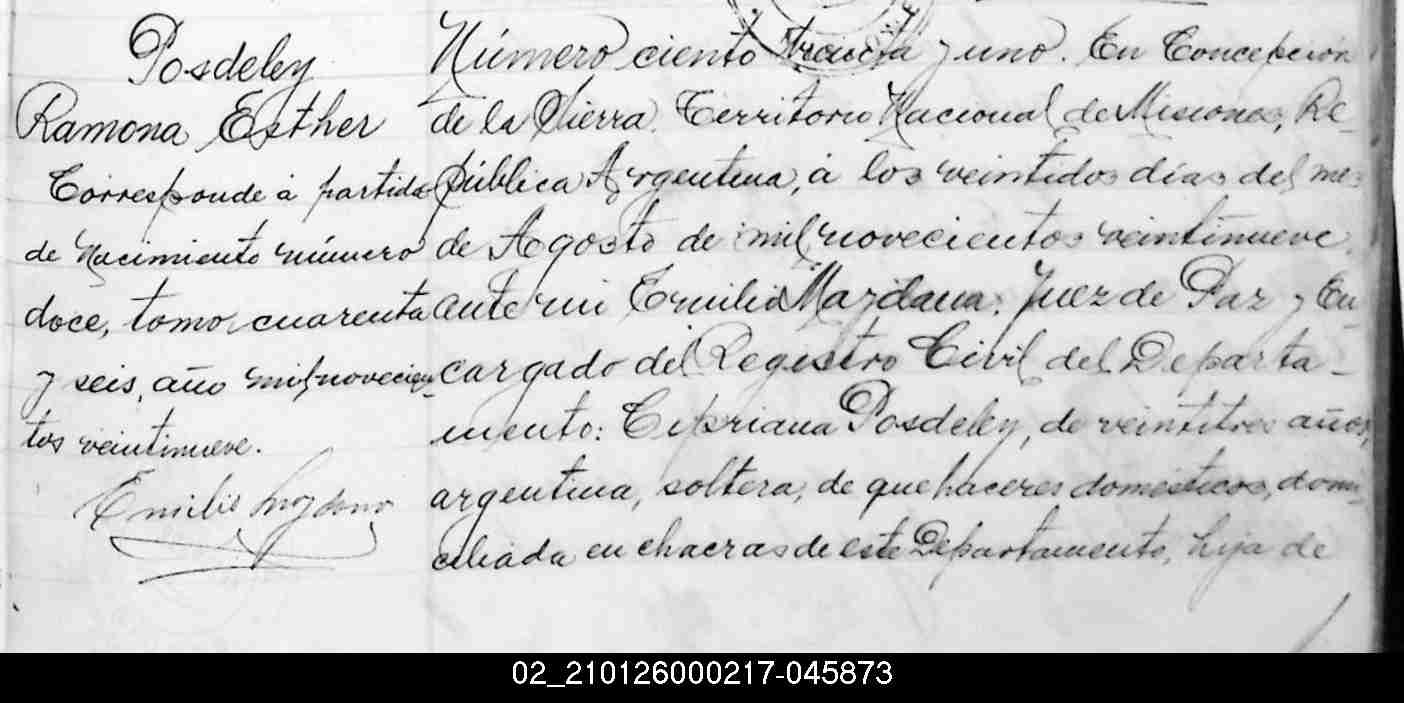 Posdeley
Ramona Esther
Corresponde á partida
de Nacimiento número
doce, tomo cuarenta
y seis, año mil novecien-
tos veintinueve.
Emilio
Número ciento treinta y uno. En Concepción
de la Sierra. Territorio Nacional de Misiones, Re-
pública Argentina, á los veintidos días del mes
de Agosto de mil novecientos veintinueve.
ante mi Emilio Juez de Paz y En-
cargado del Registro Civil del Departa-
mento: Cipriana Posdeley, de veintitres años,
argentina, soltera, de quehaceres domésticos, domi-
ciliada en chacras de este Departamento, hija de
02_210126000217-045873